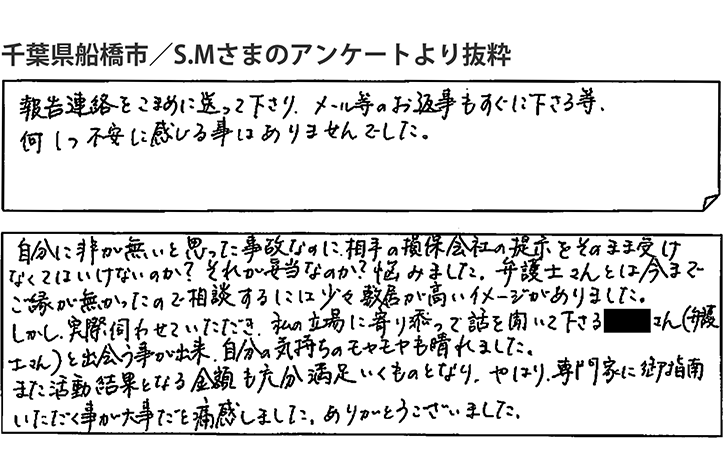 千葉県船橋市／S.Mさまのアンケートより抜粋
報告連絡をこまめに送って下さり、メール等のお返事もすぐに下さる等、
何1つ不安に感じる事はありませんでした。
自分に非が無いと思った事故なのに、相手の損保会社の提示をそのまま受け
なくてはいけないのか？それが妥当なのか？悩みました。弁護士さんとは今まで
ご縁が無かったので相談するには少々敷居が高いイメージがありました。
しかし、実際伺わせていただき、私の立場に寄り添って話を聞いて下さる さん(弁護
士さん)と出会う事が出来、自分の気持ちのモヤモヤも晴れました。
また活動結果となる金額も充分満足いくものとなり、やはり、専門家に御指南
いただく事が大事だと痛感しました。ありがとうございました。